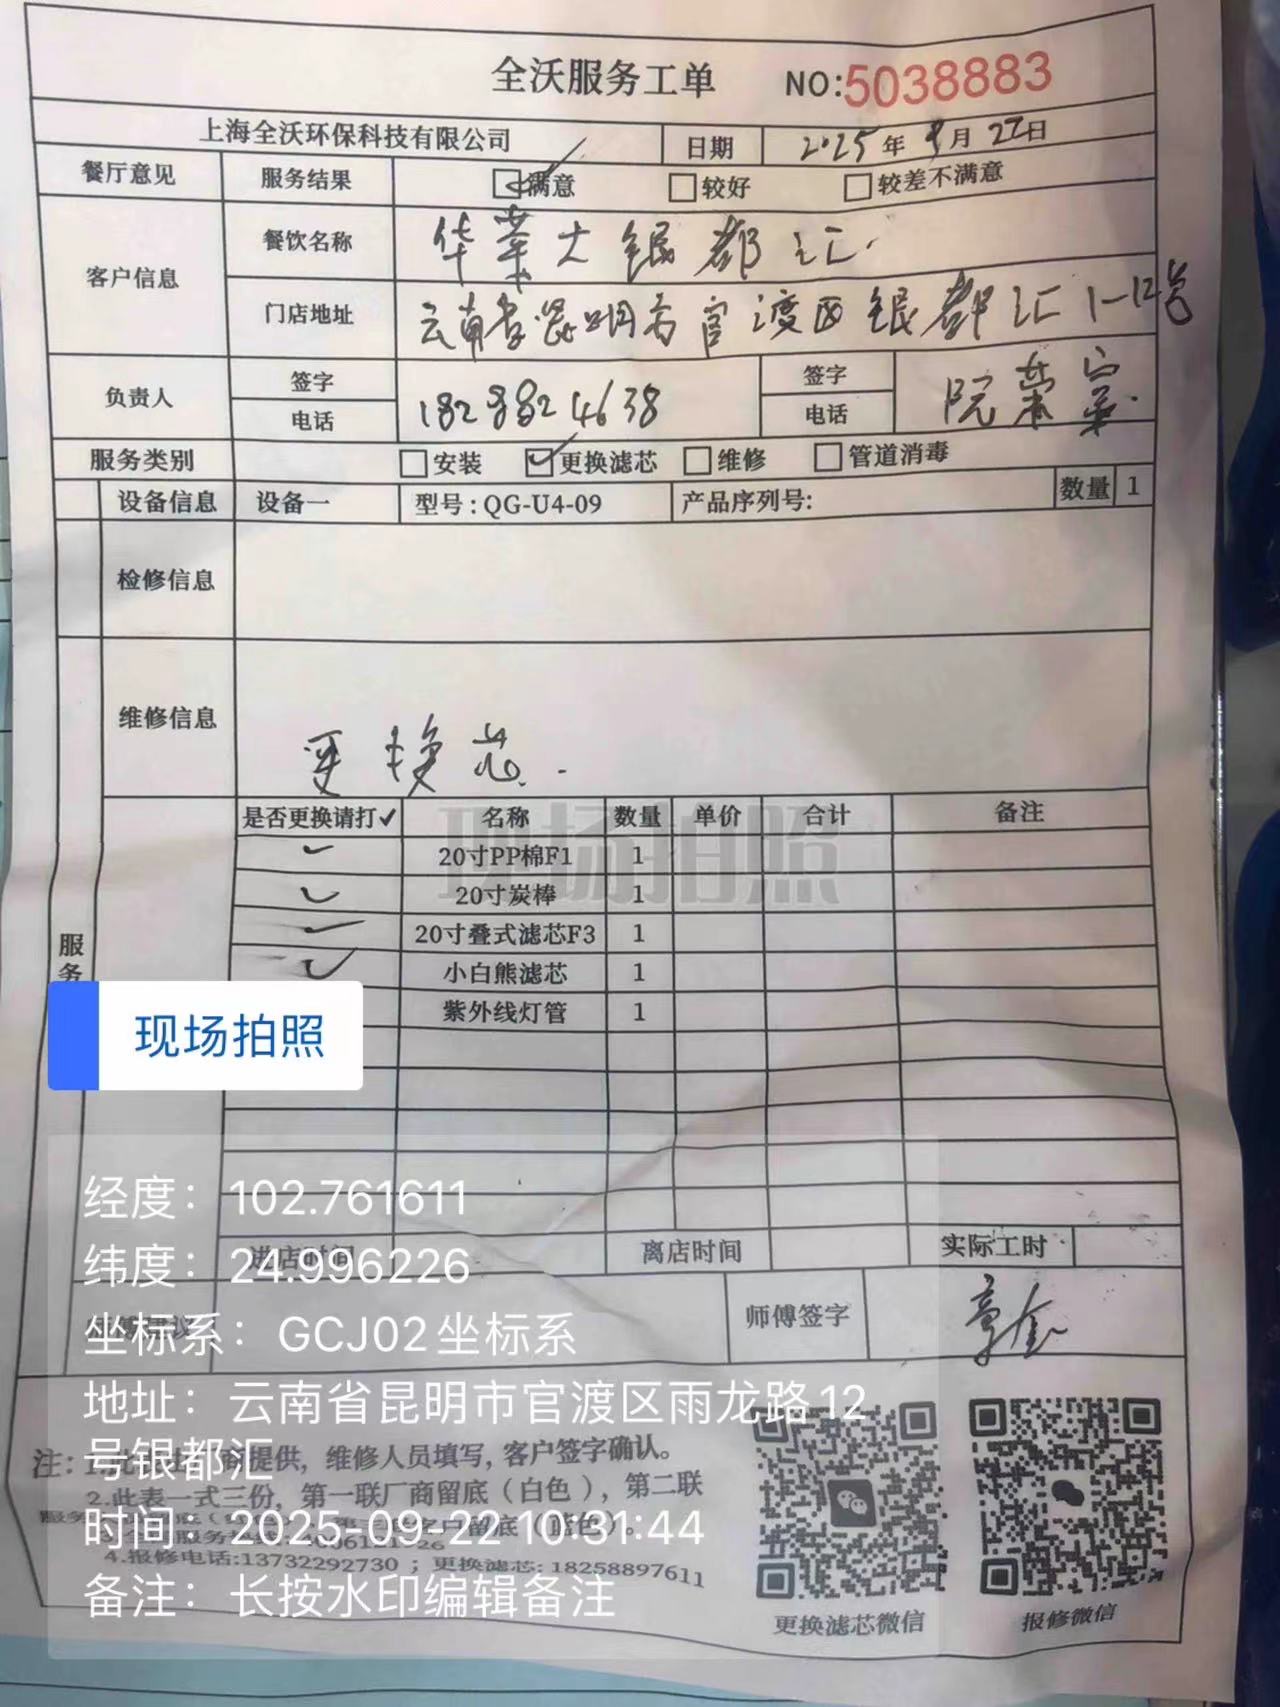 全沃服务工单 NO:5038883
上海全沃环保科技有限公司 日期 2025年9月22日
餐厅意见 服务结果 ☑满意 □较好 □较差不满意
客户信息 餐饮名称 华莱士银都汇
门店地址 云南省昆明市官渡区银都汇1-12号
负责人 签字 签字
电话 18288824638 电话
服务类别 □安装 ☑更换滤芯 □维修 □管道消毒
设备信息 设备一 型号:QG-U4-09 产品序列号: 数量 1
检修信息
维修信息 更换芯.
是否更换请打✓ 名称 数量 单价 合计 备注
✓ 20寸PP棉F1 1
✓ 20寸炭棒 1
✓ 20寸叠式滤芯F3 1
✓ 小白熊滤芯 1
紫外线灯管 1
服务
现场拍照
现场拍照
进店时间 离店时间 实际工时
师傅签字 章金
经度：102.761611
纬度：24.996226
坐标系：GCJ02坐标系
地址：云南省昆明市官渡区雨龙路12
号银都汇
时间：2025-09-22 10:31:44
备注：长按水印编辑备注
注:1.商提供，维修人员填写，客户签字确认。
2.此表一式三份，第一联厂商留底（白色），第二联
客户留底（蓝色）。
4.报修电话:13732292730；更换滤芯:18258897611
更换滤芯微信 报修微信